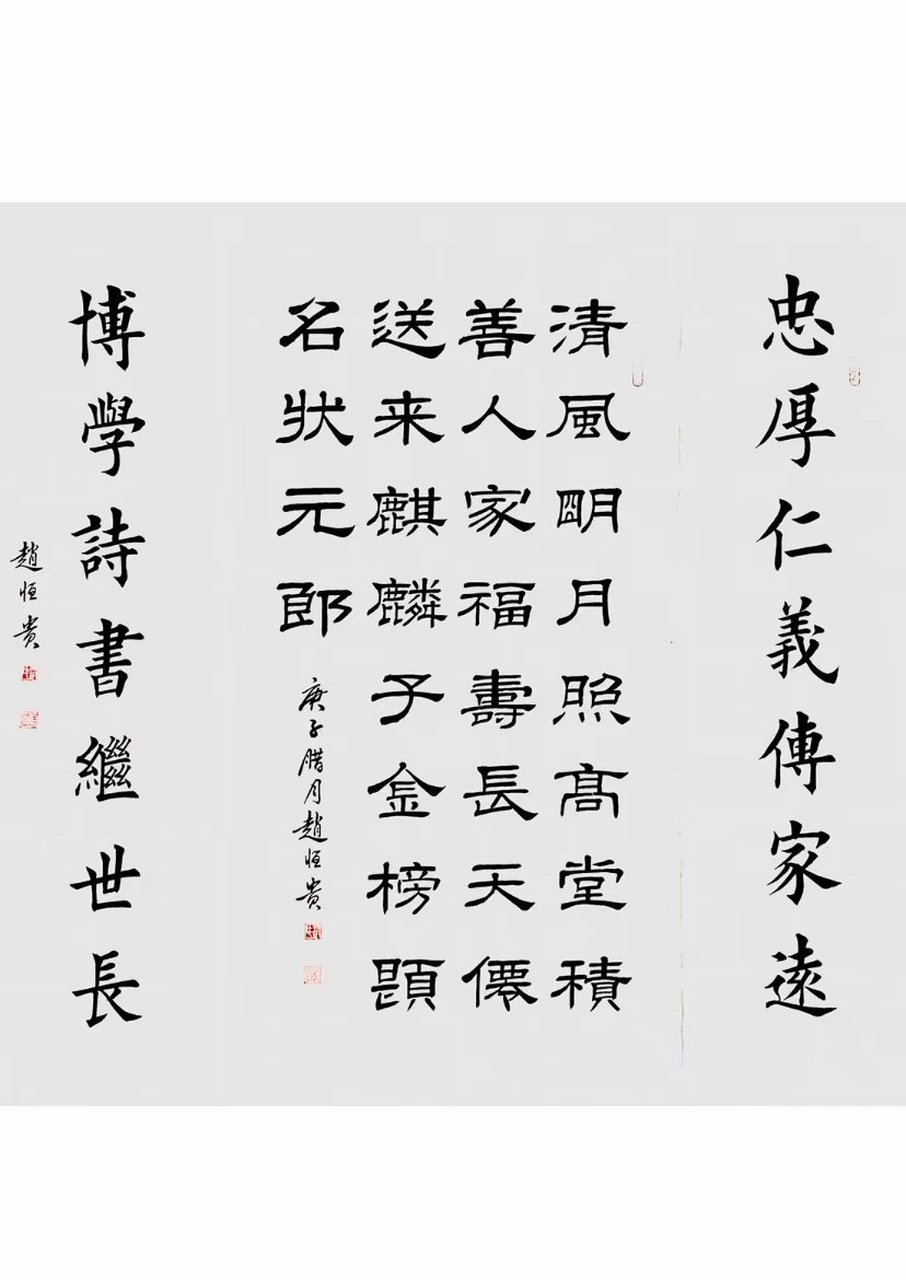 忠厚仁義傳家遠
清風明月照高堂積
善人家福壽長天僊
送来麒麟子金榜題
名状元郎
庚子腊月趙恒贵
博學詩書繼世長
趙恒贵